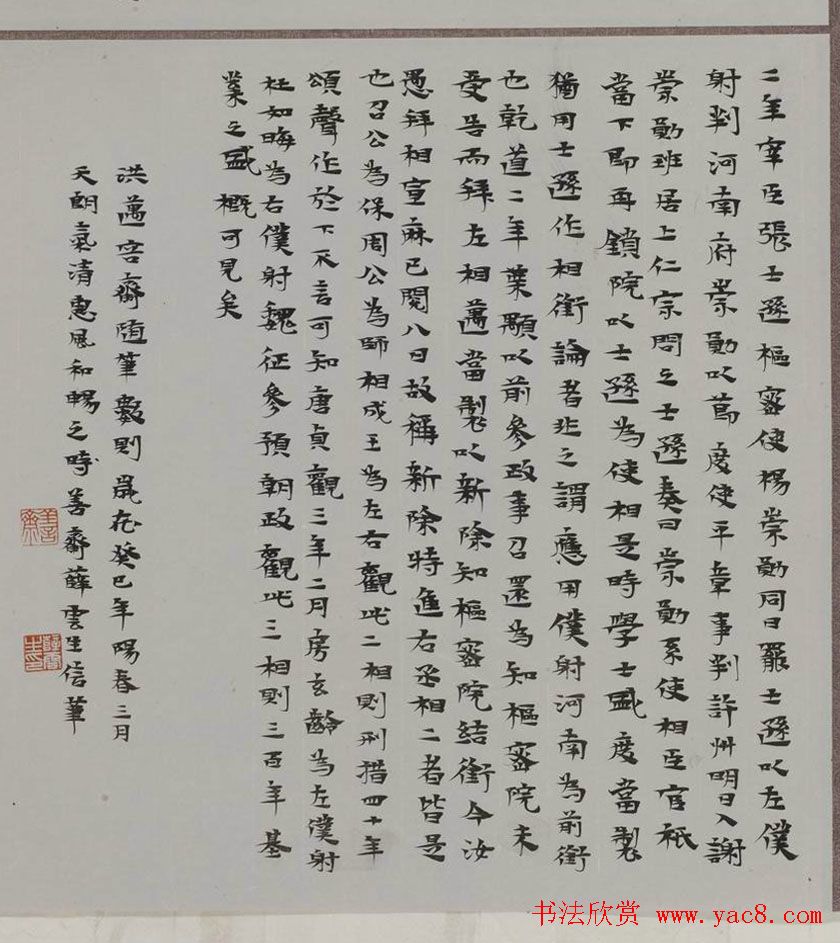 二年宰臣張士遜樞密使楊崇勛同日罷士遜以左僕
射判河南府崇勛以節度使平章事判許州明日入謝
崇勛班居上仁宗問之士遜奏曰崇勛系使相臣官祇
當下即再鎖院以士遜為使相是時學士盛度當製
猶用士遜作相銜論者非之謂應用僕射河南為前銜
也乾道二年葉顒以前參政事召還為知樞密院未
受告而拜左相邁當製以新除知樞密院結銜今汝
愚拜相宣麻已閱八日故稱新除特進右丞相二者皆是
也召公為保周公為師相成王為左右觀此二相則刑措四十年
頌聲作於下不言可知唐貞觀三年二月房玄齡為左僕射
杜如晦為右僕射魏征參預朝政觀此三相則三百年基
業之盛概可見矣
洪邁容齋隨筆數則歲在癸巳年陽春三月
天朗氣清惠風和暢之時善齋薛雲生信筆
书法欣赏 www.yac8.com